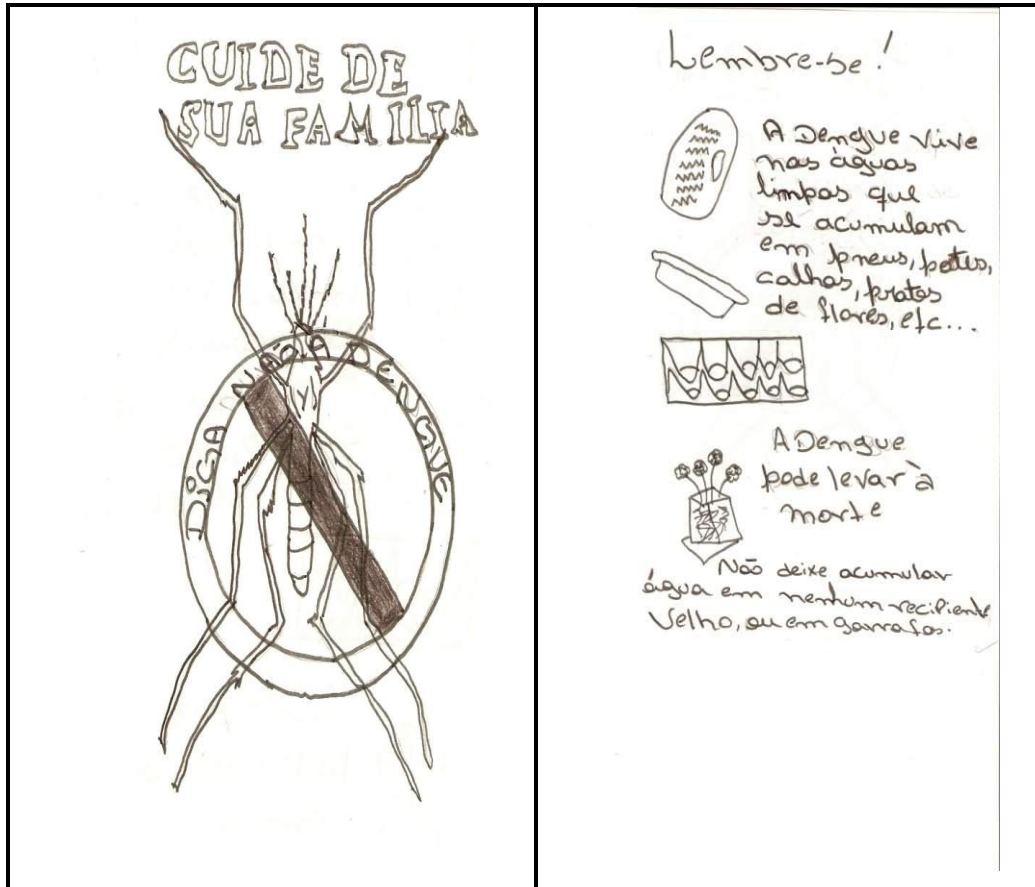 CUIDE DE
SUA FAMILIA
DIGA NÃO A DENGUE
Lembre-se!
A Dengue vive
nas águas
limpas que
se acumulam
em pneus, potes,
calhas, pratos
de flores, etc...
A Dengue
pode levar à
morte
Não deixe acumular
água em nenhum recipiente
Velho, ou em garrafas.